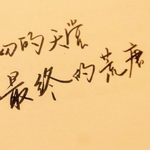 的天堂
最终的荒唐